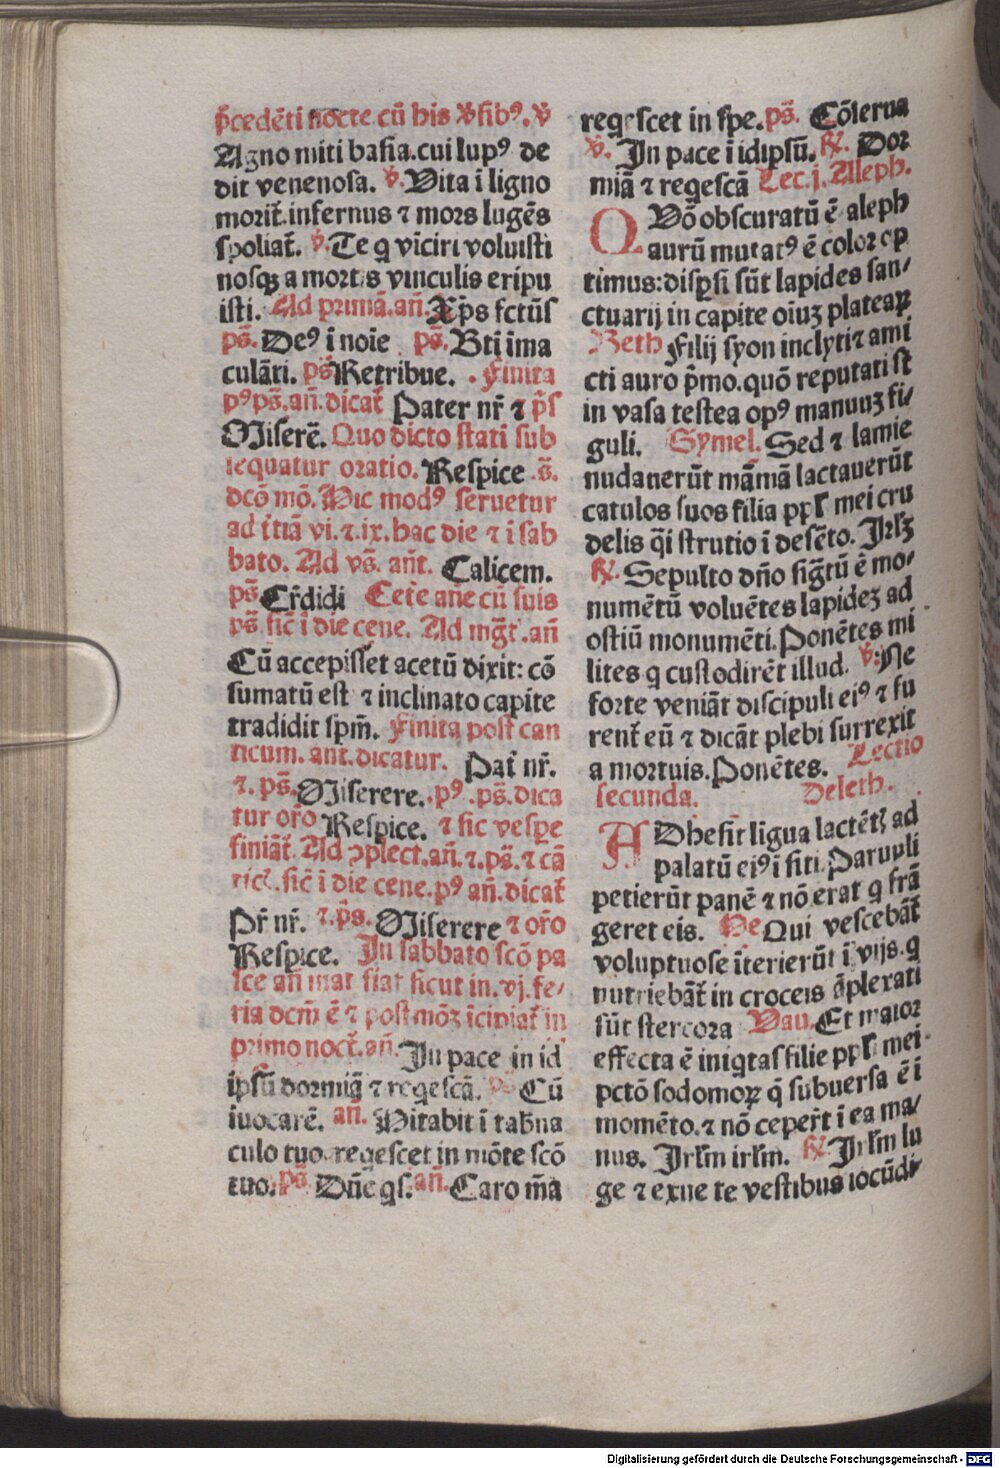 p̄cedēti nocte cū his v̄sibꝰ. v̄
Agno miti basia. cui lupꝰ de
dit venenosa. v̄. Vita ī ligno
morit̄. infernus ⁊ mors lugēs
spoliat̄. v̄. Te q viciri voluisti
nosqꝫ a mortis vinculis eripu
isti. Ad primā. an̄. Xp̄s fctūs
ps̄. Deꝰ ī noīe ps̄. Bt̄i īma
culāti. ps̄ Retribue. . finita
pꝰ ps̄. an̄. dicat̄ Pater nr̄ ⁊ p̄s
Miserē. Quo dicto stati sub
sequatur oratio. Respice .s̄.
dcō mō. Hic modꝰ seruetur
ad t̄tiā vi. ⁊. ix. hac die ⁊ ī sab
bato. Ad vs̄. an̄t. Calicem.
ps̄ Cr̄didi Cet̄e an̄e cū suis
ps̄. sic̄ ī die cene. Ad mḡt̄. an̄
Cū accepisset acetū dixit: cō
sumatū est ⁊ inclinato capite
tradidit sp̄m. finita post can
ticum. ant. dicatur. Pat̄ nr̄.
⁊. ps̄. Miserere. . pꝰ . ps̄. dica
tur or̄o Respice. ⁊ sic vespe
finiāt̄. Ad ↄplect. an̄. ⁊. ps̄. ⁊ cā
tic̄. sic̄ ī die cene. pꝰ an̄. dicat̄
Pr̄ nr̄. ⁊. p̄s. Miserere ⁊ or̄o
Respice. In sabbato scō pa
sce an̄ mat fiat sicut in. vj. fe⸗
ria dcm̄ ē ⁊ post mōꝫ īcipiat̄ in
primo noct̄. an̄. In pace in id
ipsū dormiā ⁊ reqescā. ps̄ Cū
īuocarē. an̄. Hitabit ī tab̄na
culo tuo. reqescet in mōte scō
tuo. ps̄ Dn̄e qs. an̄. Caro m̄a
reqescet in spe. ps̄. Cōserua
v̄. In pace ī idipsū. ℟. Dor
miā ⁊ reqescā Lec. j. Aleph.
QVō obscuratū ē aleph
aurū mutatꝰ ē color op
timus: disp̄si sūt lapides san⸗
ctuarij in capite oīuꝫ plateaꝝ
Beth Filij syon inclyti ⁊ ami
cti auro p̄mo. quō reputati st̄
in vasa testea opꝰ manuuꝫ fi⸗
guli. Gymel. Sed ⁊ lamie
nudauerūt māmā lactauerūt
catulos suos filia ppl̄ mei cru
delis q̄i strutio ī desēto. Irl̄ꝫ
℟. Sepulto dn̄o siḡtū ē mo⸗
numētū voluētes lapideꝫ ad
ostiū monumēti. Ponētes mi
lites q custodirēt illud. v̄: Ne
forte veniāt discipuli eiꝰ ⁊ fu
rent̄ eū ⁊ dicāt plebi surrexit
a mortuis. Ponētes. Lectio
secunda. Deleth.
ADhesit ligua lactētꝭ ad
palatū eiꝰ ī siti. Paruuli
petierūt panē ⁊ nō erat q frā
geret eis. He Qui vescebāt̄
voluptuose īterierūt ī vijs. q
nutriebāt̄ in croceis āplexati
sūt stercora Vau. Et maior
effecta ē iniqtas filie ppl̄ mei
pctō sodomoꝝ q̄ subuersa ē ī
momēto. ⁊ nō ceper̄t ī ea ma⸗
nus. Irl̄m irl̄m. ℟. Irl̄m lu
ge ⁊ exue te vestibus iocūdi⸗
Digitalisierung gefördert durch die Deutsche Forschungsgemeinschaft - DFG